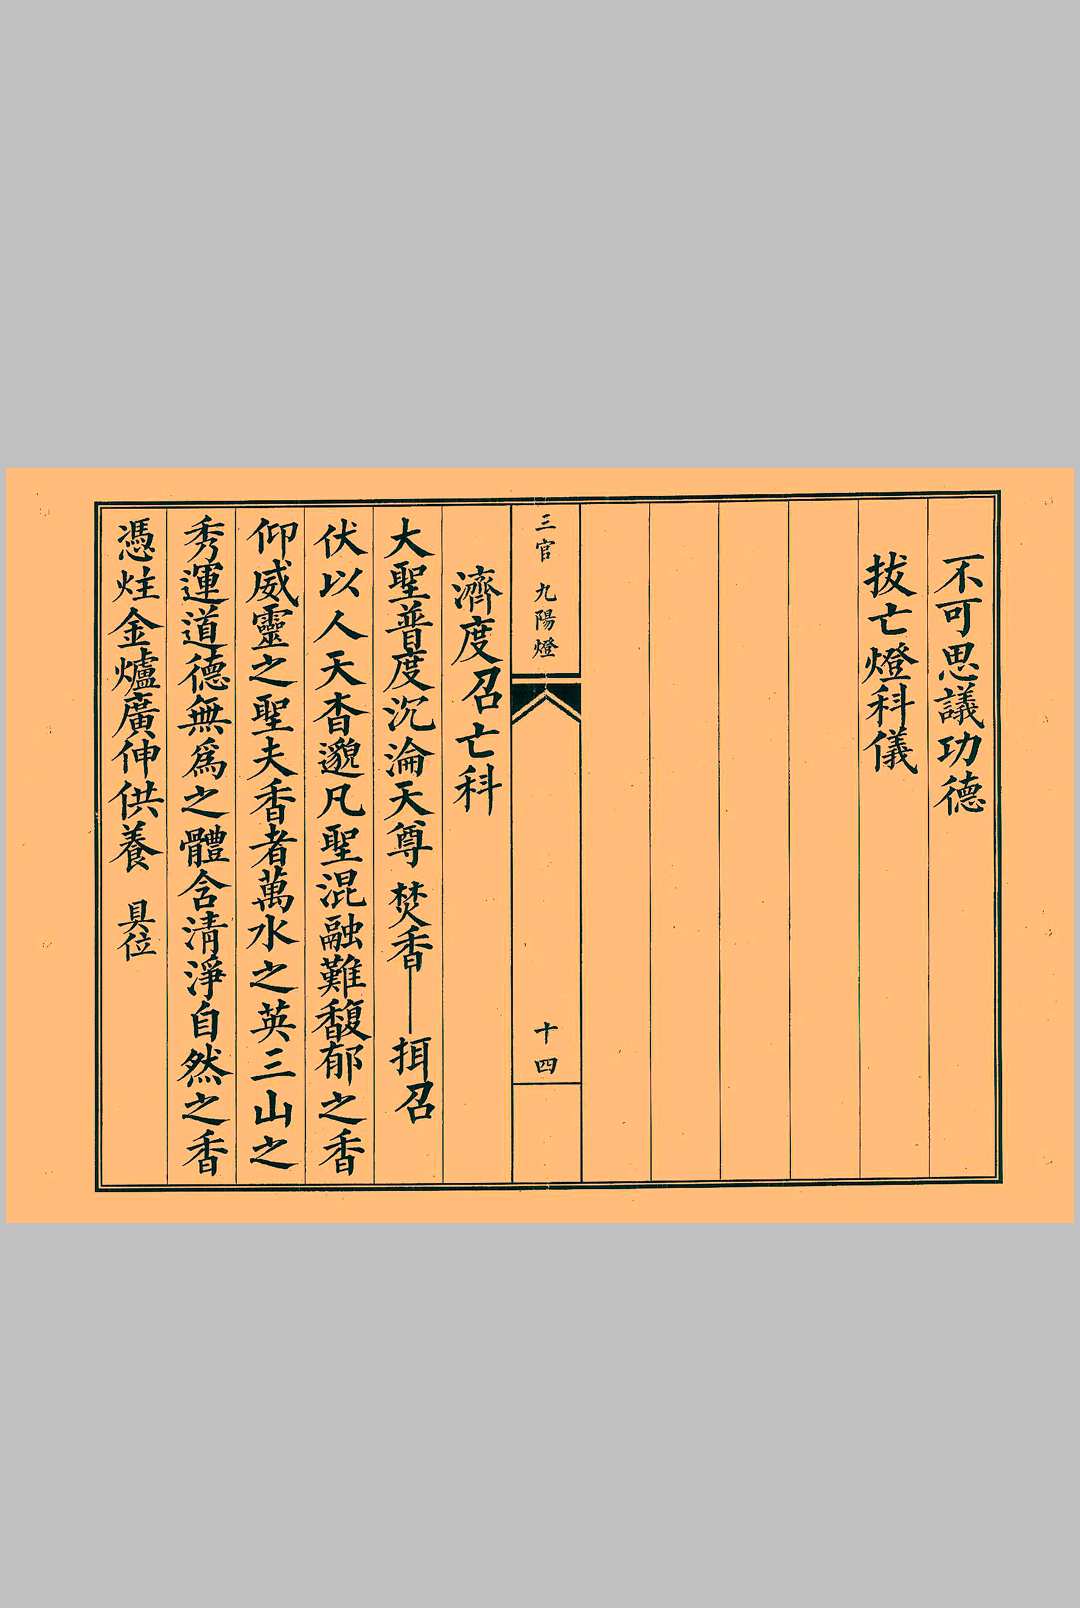 不可思議功德
拔亡燈科儀
三官 九陽燈
十四
濟度召亡科
大聖普度沉淪天尊 焚香——挕召
伏以人天杳邈凡聖混融難馥郁之香
仰威靈之聖夫香者萬水之英三山之
秀運道德無爲之體含清淨自然之香
憑炷金爐廣伸供養 具位